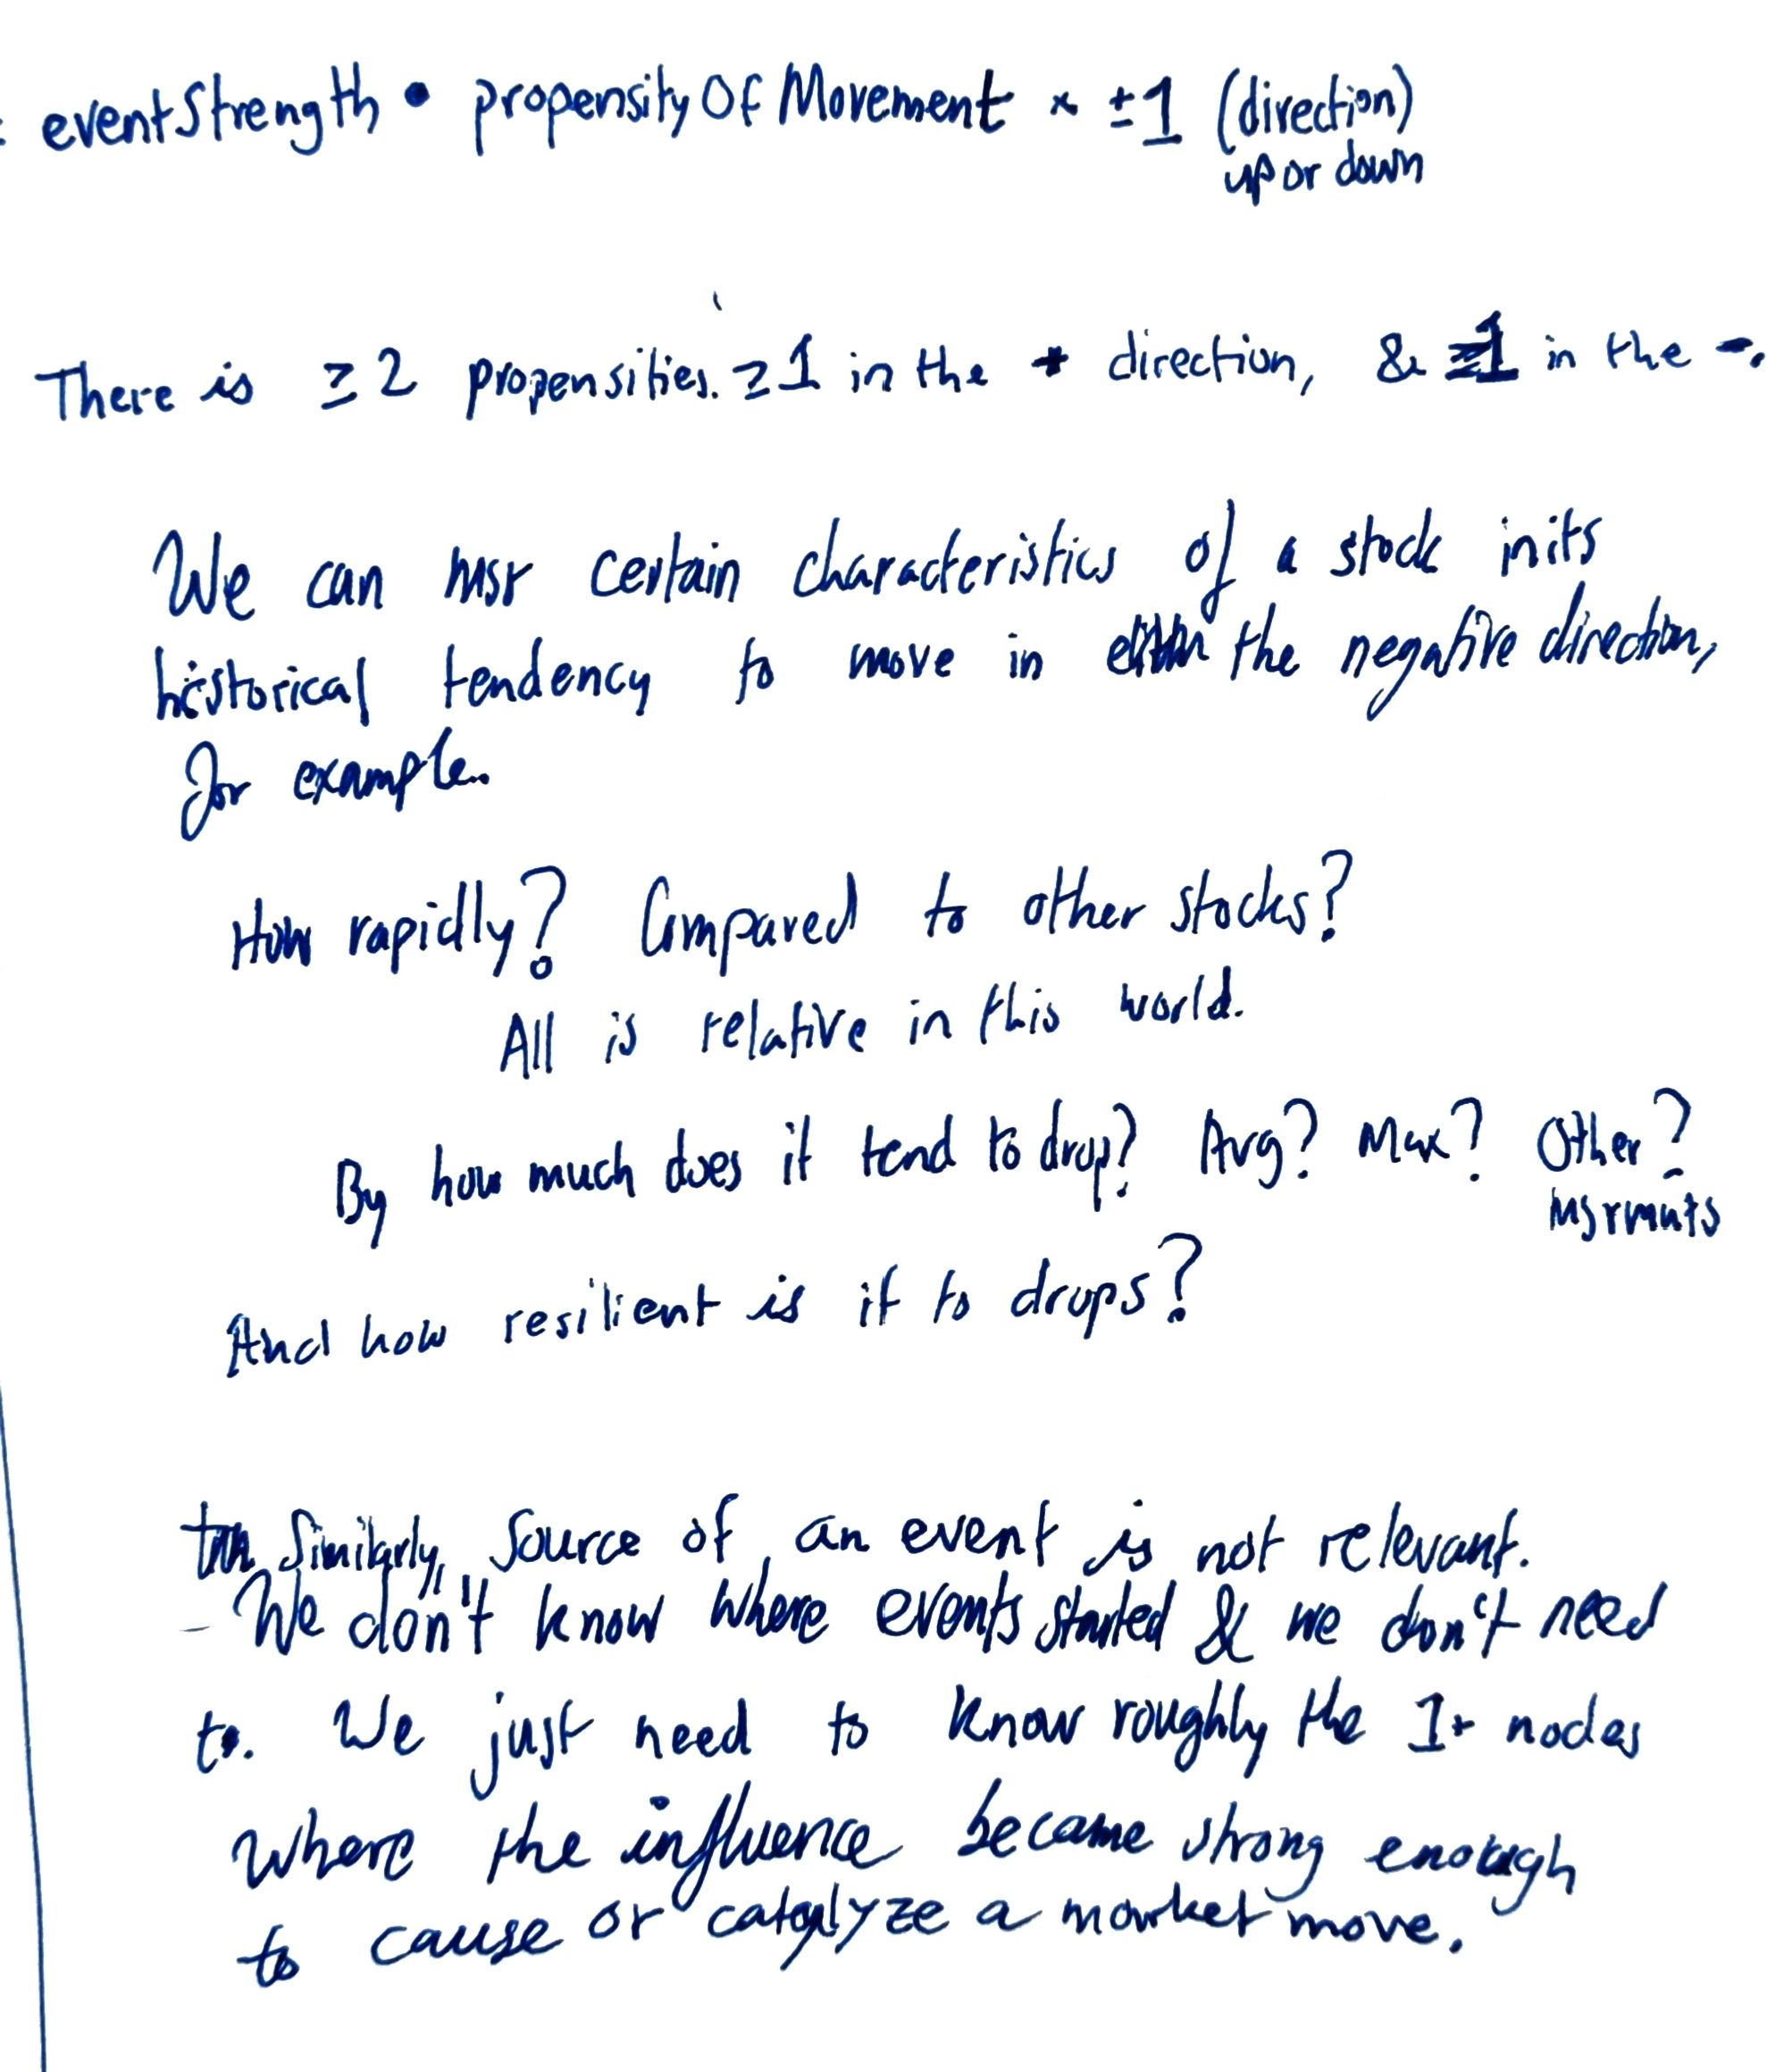 : eventStrength • propensityOfMovement × ±1 (direction)
up or down
There is ≥2 propensities. ≥1 in the + direction, & ≥1 in the -.
We can msr certain characteristics of a stock in its
historical tendency to move in either the negative direction,
for example.
How rapidly? Compared to other stocks?
All is relative in this world.
By how much does it tend to drop? Avg? Max? Other?
msrmnts
And how resilient is it to drops?
Similarly, source of an event is not relevant.
- We don't know where events started & we don't need
to. We just need to know roughly the 1+ nodes
where the influence became strong enough
to cause or catalyze a market move.